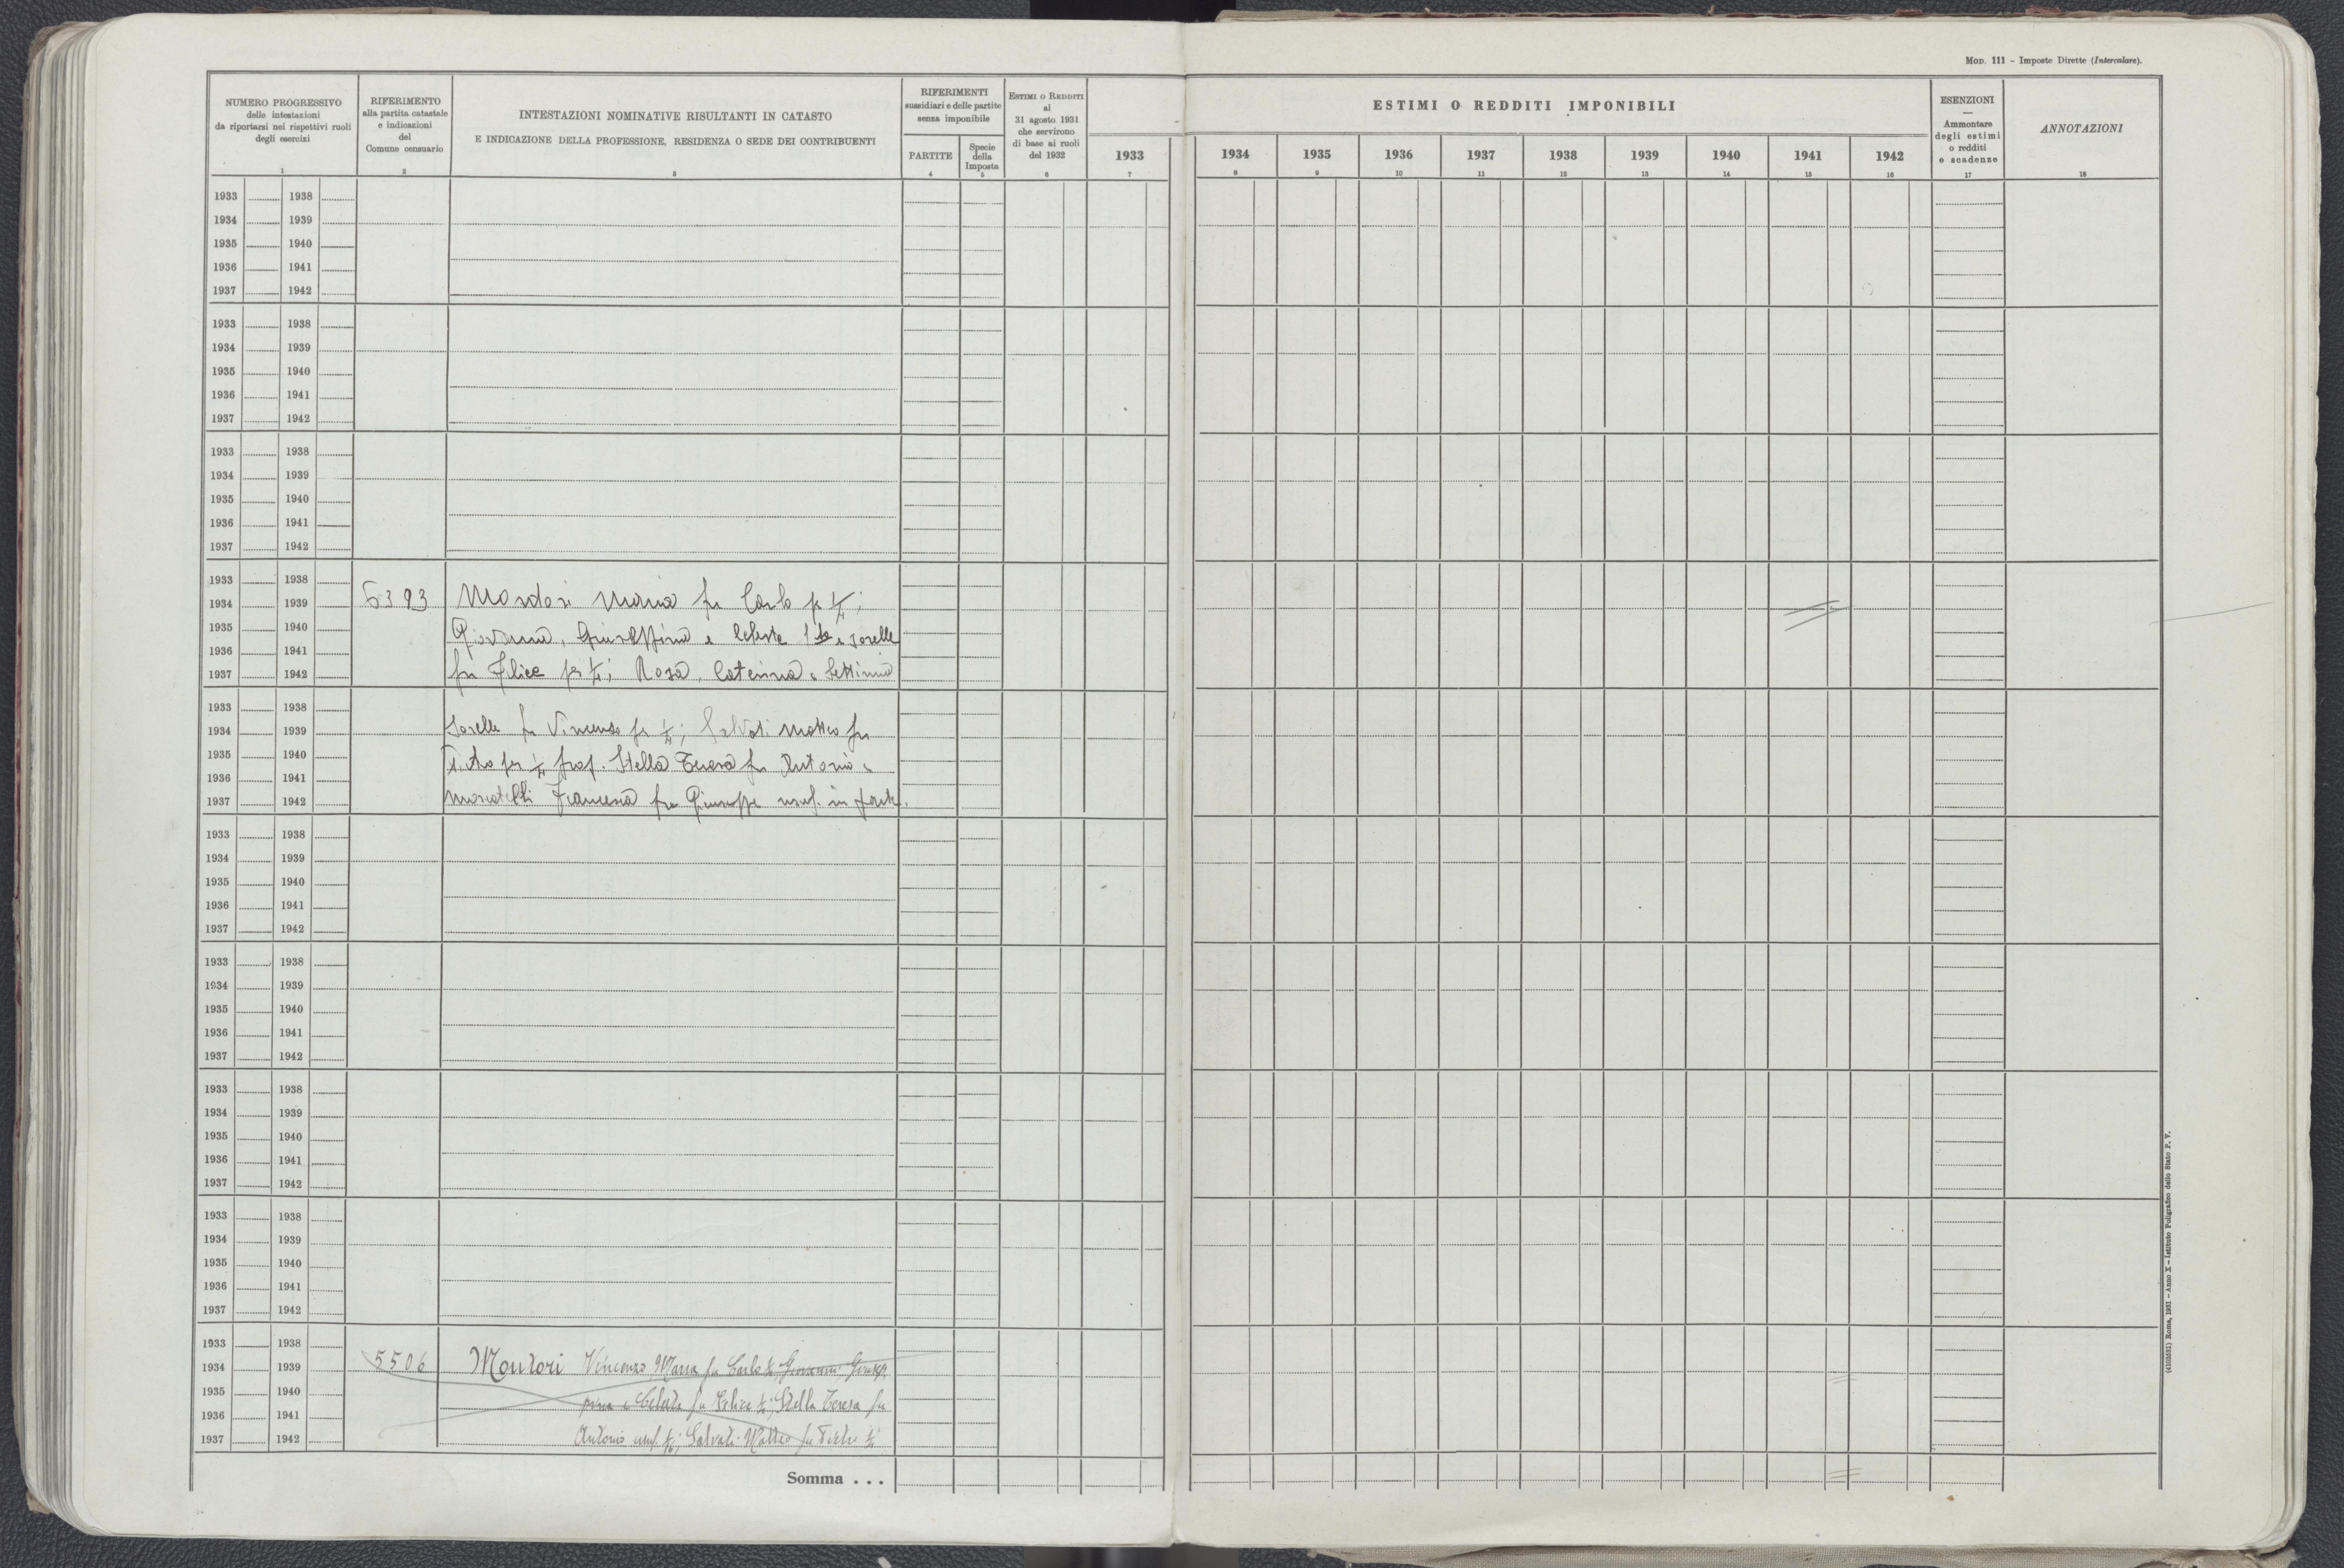 Mod. 111 – Imposte Dirette (Intercalare).
NUMERO PROGRESSIVO
delle intestazioni
da riportarsi nei rispettivi ruoli
degli esercizi
1
RIFERIMENTO
alla partita catastale
e indicazioni
del
Comune censuario
2
INTESTAZIONI NOMINATIVE RISULTANTI IN CATASTO
E INDICAZIONE DELLA PROFESSIONE, RESIDENZA O SEDE DEI CONTRIBUENTI
3
RIFERIMENTI
sussidiari e delle partite
senza imponibile
PARTITE
4
Specie
della
Imposta
5
Estimi o Redditi
al
31 agosto 1931
che servirono
di base ai ruoli
del 1932
6
1933
7
ESTIMI O REDDITI IMPONIBILI
1934 1935 1936 1937 1938 1939 1940 1941 1942
8 9 10 11 12 13 14 15 16
ESENZIONI
—
Ammontare
degli estimi
o redditi
e scadenze
17
ANNOTAZIONI
18
1933 1938
1934 1939
1935 1940
1936 1941
1937 1942
1933 1938
1934 1939
1935 1940
1936 1941
1937 1942
1933 1938
1934 1939
1935 1940
1936 1941
1937 1942
1933 1938
1934 1939 6393 Maria fu Carlo p ¼;
1935 1940 Giovanna, Giuseppina e Celeste sorelle
1936 1941
1937 1942 fu Felice per ¼; Rosa, Caterina e Settimia
1933 1938
1934 1939 sorelle fu Vincenzo per ¼; Salvati Matteo fu
1935 1940 per ¼ prop. Stella Teresa fu Antonio e
1936 1941
1937 1942 Moscatelli Francesca fu Giuseppe usuf. in parte.
1933 1938
1934 1939
1935 1940
1936 1941
1937 1942
1933 1938
1934 1939
1935 1940
1936 1941
1937 1942
1933 1938
1934 1939
1935 1940
1936 1941
1937 1942
1933 1938
1934 1939
1935 1940
1936 1941
1937 1942
1933 1938
1934 1939 5506 Montori Vincenzo, Maria fu Carlo ¼, Giovanni Giusep-
1935 1940 pina e Celeste fu Felice ¼; Stella Teresa fu
1936 1941
1937 1942 Antonio usuf. ¼; Salvati Matteo fu ¼
Somma . . .
(4103531) Roma, 1931 – Anno X – Istituto Poligrafico dello Stato P. V.